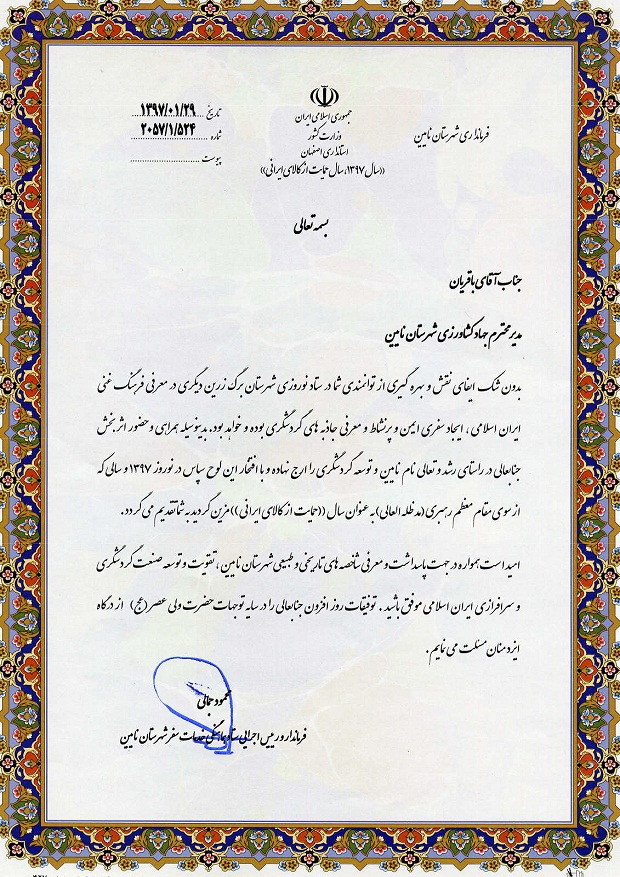 جمهوری اسلامی ایران
وزارت کشور
استانداری اصفهان
فرمانداری شهرستان نایین
تاریخ ۱۳۹۷/۰۱/۲۹
شماره ۲۰۵۷/۱/۵۲۴
پیوست
((سال ۱۳۹۷، سال حمایت از کالای ایرانی))
بسمه تعالی
جناب آقای باقریان
مدیر محترم جهاد کشاورزی شهرستان نایین
بدون شک ایفای نقش و بهره گیری از توانمندی شما در ستاد نوروزی شهرستان برگ زرین دیگری در معرفی فرهنگ غنی
ایران اسلامی ، ایجاد سفری ایمن و پرنشاط و معرفی جاذبه های گردشگری بوده و خواهد بود. بدینوسیله همراهی و حضور اثر بخش
جنابعالی در راستای رشد و تعالی نام نایین و توسعه گردشگری را ارج نهاده و با افتخار این لوح سپاس در نوروز ۱۳۹۷ و سالی که
از سوی مقام معظم رهبری (مدظله العالی) به عنوان سال ((حمایت از کالای ایرانی)) مزین گردید به شما تقدیم می گردد.
امید است همواره در جهت پاسداشت و معرفی شاخصه های تاریخی و طبیعی شهرستان نایین ، تقویت و توسعه صنعت گردشگری
و سرافرازی ایران اسلامی موفق باشید . توفیقات روز افزون جنابعالی را در سایه توجهات حضرت ولی عصر (عج) از درگاه
ایزد منان مسئلت می نمایم .
محمود جمالی
فرماندار و رییس اجرایی ستاد هماهنگی خدمات سفر شهرستان نایین